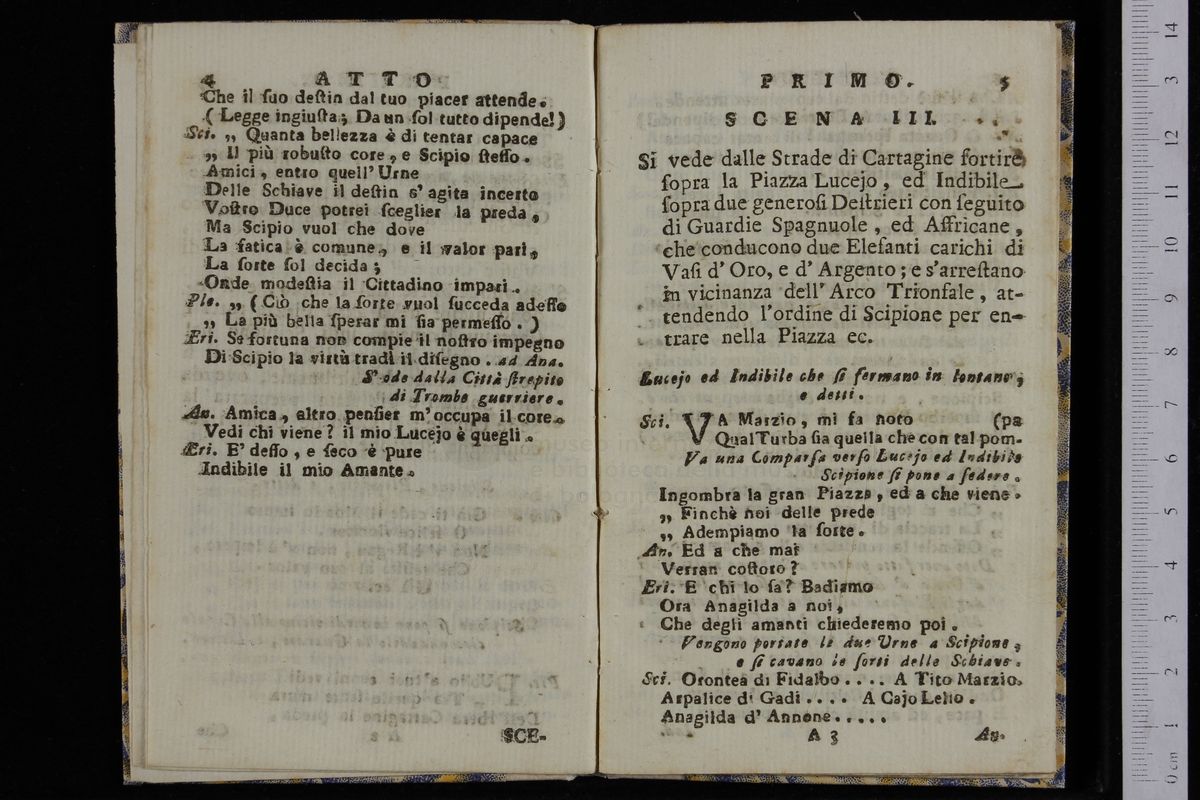 4 ATTO
Che il ſuo deſtin dal tuo piacer attende.
( Legge ingiuſta; Da un ſol tutto dipende!)
Sci. „ Quanta bellezza è di tentar capace
„ Il più robuſto core, e Scipio ſteſſo.
Amici, entro quell' Urne
Delle Schiave il deſtin s' agita incerto
Voſtro Duce potrei ſceglier la preda,
Ma Scipio vuol che dove
La fatica è comune, e il valor pari,
La ſorte ſol decida;
Onde modeſtia il Cittadino impari.
Ple. „ ( Ciò che la ſorte vuol ſucceda adeſſo
„ La più bella ſperar mi ſia permeſſo. )
Eri. Se fortuna non compie il noſtro impegno
Di Scipio la virtù tradì il diſegno. ad Ana.
S' ode dalla Città ſtrepito
di Trombe guerriere.
An. Amica, altro penſier m' occupa il core.
Vedi chi viene? il mio Lucejo è quegli.
Eri. E' deſſo, e ſeco è pure
Indibile il mio Amante.
SCE-
PRIMO. 5
SCENA III.
Si vede dalle Strade di Cartagine ſortire
ſopra la Piazza Lucejo, ed Indibile
ſopra due generoſi Deſtrieri con ſeguito
di Guardie Spagnuole, ed Affricane,
che conducono due Elefanti carichi di
Vaſi d' Oro, e d' Argento; e s'arreſtano
in vicinanza dell' Arco Trionfale, at-
tendendo l'ordine di Scipione per en-
trare nella Piazza ec.
Lucejo ed Indibile che ſi fermano in lontano,
e detti.
Sci. VA Marzio, mi fa noto (pa
Qual Turba ſia quella che con tal pom-
Va una Comparſa verſo Lucejo ed Indibile
Scipione ſi pone a ſedere.
Ingombra la gran Piazza, ed a che viene.
„ Finchè noi delle prede
„ Adempiamo la ſorte.
An. Ed a che mai
Verran coſtoro?
Eri. E chi lo ſa? Badiamo
Ora Anagilda a noi,
Che degli amanti chiederemo poi.
Vengono portate le due Urne a Scipione,
e ſi cavano le ſorti delle Schiave.
Sci. Orontea di Fidalbo .... A Tito Marzio.
Arpalice di Gadi .... A Cajo Lelio.
Anagilda d' Annone.....
A 3 An.
0 cm 1 2 3 4 5 6 7 8 9 10 11 12 13 14